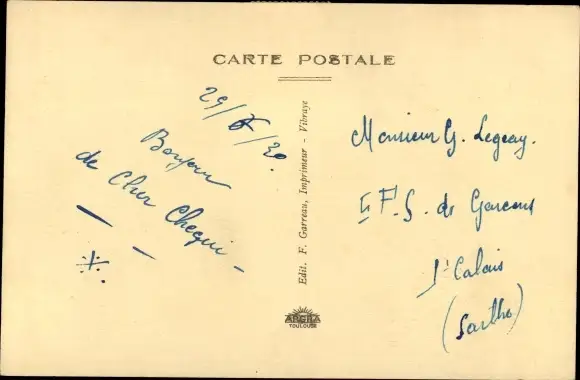 CARTE POSTALE
29/8/30.
Bonjour
de Cher Chequi
Edit. F. Garreau, Imprimeur - Vibraye
ARGRA
TOULOUSE
Monsieur G. Legeay.
F. G. de Garcons
St Calais
(Sarthe)